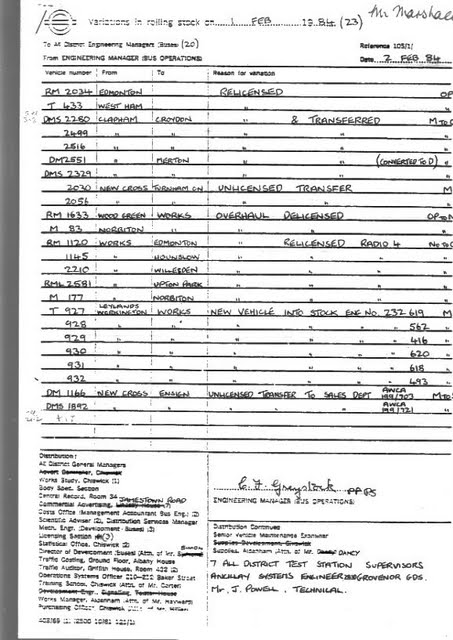 Mr Marshall
Variations in rolling stock on 1 FEB 1984 (23)
To All District Engineering Managers (Buses) (20) Reference 103/1
From ENGINEERING MANAGER (BUS OPERATIONS) Date 2 FEB 84
Vehicle number From To Reason for variation
RM 2034 EDMONTON RELICENSED OP
T 433 WEST HAM "
DMS 2280 CLAPHAM CROYDON " & TRANSFERRED M TO
2499 " " " "
2516 " " " "
DM2551 " MERTON " " (CONVERTED TO D)
DMS 2329 " " " "
2030 NEW CROSS TURNHAM GN UNLICENSED TRANSFER M
2056 " " " "
RM 1633 WOOD GREEN WORKS OVERHAUL DELICENSED OP TO
M 83 NORBITON " " "
RM 1120 WORKS EDMONTON " RELICENSED RADIO 4 N TO
1145 " HOUNSLOW " " "
2210 " WILLESDEN " " "
RML 2581 " UPTON PARK " " "
M 177 " NORBITON " "
T 927 LEYLANDS WORKINGTON WORKS NEW VEHICLE INTO STOCK ENG NO. 232 619 M
928 " " " " 562
929 " " " " 416
930 " " " " 620
931 " " " " 618
932 " " " " 493
DM 1166 NEW CROSS ENSIGN UNLICENSED TRANSFER TO SALES DEPT AWCA 199/703 M TO
DMS 1892 " " " " AWCA 199/721 "
Distribution:
All District General Managers
Works Study, Chiswick (1)
Body Spec. Section
Central Record, Room 34 JAMESTOWN ROAD
Commercial Advertising,
Costs Office (Management Account Bus Eng.) (2)
Scientific Adviser (2), Distribution Services Manager
Mech. Engr. (Development - Buses) (2)
Licensing Section
Statistical Office, Chiswick (2)
Director of Development (Buses) (Attn. of Mr. SIMON
Traffic Costing, Ground Floor, Albany House
Traffic Auditor, Griffith House, Room 432 (2)
Operations Systems Officer 210-212 Baker Street
Training School, Chiswick (Attn. of Mr. Carter)
Development Engr., Signalling,
Works Manager, Aldenham (Attn. of Mr. Hayward)
Purchasing Officer, Chiswick
ENGINEERING MANAGER (BUS OPERATIONS)
Distribution Continued
Senior Vehicle Maintenance Examiner
Supplies Development, Chiswick
Supplies, Aldenham (Attn. of Mr. DANCY
7 ALL DISTRICT TEST STATION SUPERVISORS
ANCILLARY SYSTEMS ENGINEER GROVENOR GDS.
Mr. J. POWELL. TECHNICAL.